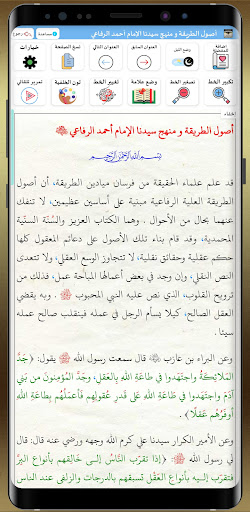 أصول الطريقة و منهج سيدنا الإمام أحمد الرفاعي
مساعدة
رجوع
إضافة للمفضلة
وضع الليل
العنوان السابق
العنوان التالي
نسخ الصفحة
خيارات
تكبير الخط
تصغير الخط
وضع علامة
تغيير الخط
لون الخلفية
تمرير تلقائي
إخفاء
أصول الطريقة و منهج سيدنا الإمام أحمد الرفاعي ﷺ
بِسْمِ اللهِ الرَّحْمنِ الرَّحِيمِ
قد علم علماء الحقيقة من فرسان ميادين الطريقة، أن أصول
الطريقة العلية الرفاعية مبنية على أساسين عظيمين، لا تنفك
عنهما بحال من الأحوال . وهما الكتاب العزيز والسُّنة السنيّة
المحمدية. وقد قام بناء تلك الأصول على دعائم المعقول كلها
حكم عقلية وحقائق نقلية، لا تتجاوز الوسع العقلي، ولا تتعدى
النص النقلي، وإن وجد في بعض أعمالها المباحة عمل، فلذلك من
ترويح القلوب، الذي نص عليه النبي المحبوب ﷺ . وبه يقضي
العقل الصالح، كيلا يسأم الرجل في عمله فينقلب صالح عمله
إلى سيئ.
وعن البراء بن عازب ﷺ قال سمعت رسول الله ﷺ يقول: (جَدَّ
المَلَائِكَةُ واجتَهَدوا في طاعَةِ اللهِ بِالعَقلِ، وَجَدَّ المُؤمِنُونَ مِن بَني
آدَمَ واجتَهَدوا في طاعَةِ اللهِ عَلى قَدرِ عُقولِهِم فَأعمَلُهُم بِطاعَةِ اللهِ
أَوفَرُهُم عَقلًا).
وعن الأمير الكرار سيدنا علي كرم الله وجهه ورضي عنه قال: قال
لي رسول الله ﷺ: (إذا تَقَرَّبَ النَّاسُ إلى خَالِقِهم بِأنواعِ البِرِّ
فتقرَّب إليه بِأنواعِ العَقلِ تَسبِقهُم بِالدرجاتِ والزلفى عند الناس